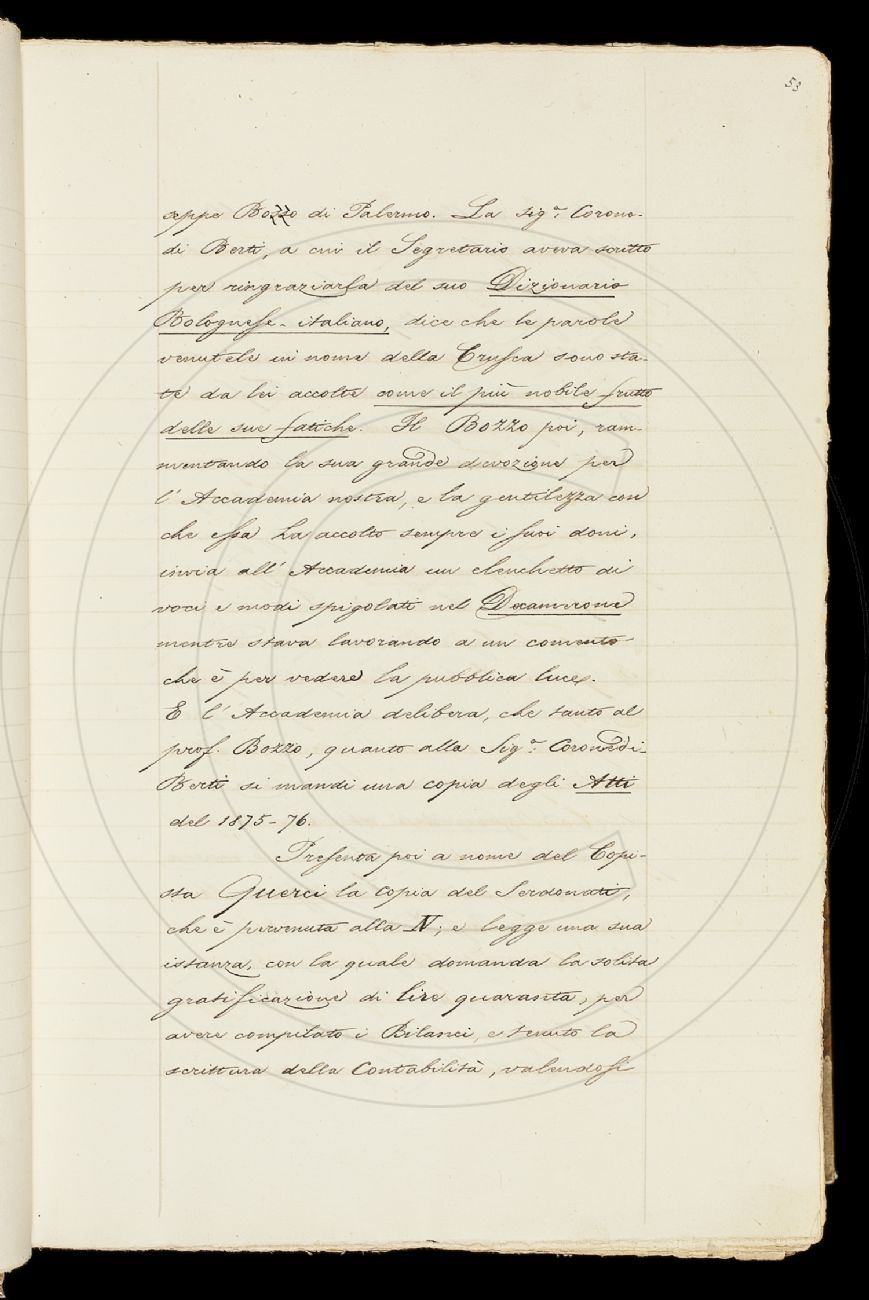 53
seppe Bozzo di Palermo. La sig.ª Corone-
di Berti, a cui il Segretario aveva scritto
per ringraziarla del suo Dizionario
Bolognese-italiano, dice che le parole
venutele in nome della Crusca sono sta-
te da lei accolte come il più nobile frutto
delle sue fatiche. Il Bozzo poi, ram-
mentando la sua grande devozione per
l'Accademia nostra, e la gentilezza con
che essa ha accolto sempre i suoi doni,
invia all'Accademia un elenchetto di
voci e modi spigolati nel Decamerone
mentre stava lavorando a un comento
che è per vedere la pubblica luce.
E l'Accademia delibera, che tanto al
prof. Bozzo, quanto alla Sig.ª Coronedi-
Berti si mandi una copia degli Atti
del 1875-76.
Presenta poi a nome del Copi-
sta Querci la copia del Serdonati,
che è pervenuta alla N; e legge una sua
istanza, con la quale domanda la solita
gratificazione di lire quaranta, per
avere compilato i Bilanci, e tenuto la
scrittura della Contabilità, valendosi